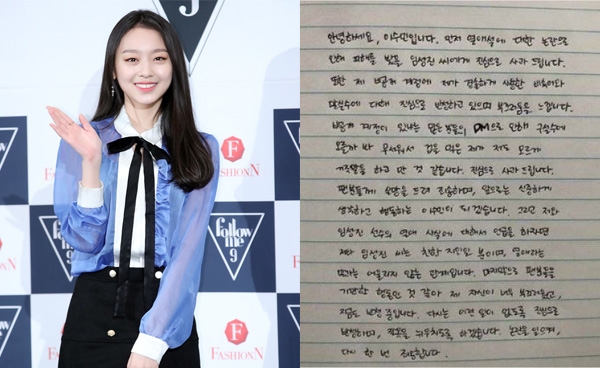 J
9
F
FASHIONN
follow me 9
follow me 9
F
FASHIONN
안녕하세요, 이수민입니다. 먼저 열애설에 대한 논란으로
인해 피해를 받은 임성진 씨에게 진심으로 사과 드립니다.
또한 제 비공개 계정에 제가 경솔하게 사용한 비속어와
말실수에 대해 진심으로 반성하고 있으며 부끄러움을 느낍니다.
비공개 계정이 있냐는 많은 분들의 DM으로 인해 구설수에
오를까 봐 무서워서 겁을 먹은 제가 저도 모르게
거짓말을 하고 만 것 같습니다. 진심으로 사과 드립니다.
팬분들께 실망을 드려 죄송하며, 앞으로는 신중하게
생각하고 행동하는 이수민이 되겠습니다. 그리고 저와
임성진 선수의 열애 사실에 대해서 언급을 하자면
저와 임성진 씨는 친한 지인일 뿐이며, 열애라는
말과는 어울리지 않는 관계입니다. 마지막으로 팬분들을
기만한 행동인 것 같아 제 자신이 너무 부끄러웠고,
지금도 반성 중입니다. 다시는 이런 일이 없도록 진심으로
반성하며, 잘못을 뉘우치도록 하겠습니다. 논란을 일으켜,
다시 한 번 죄송합니다.